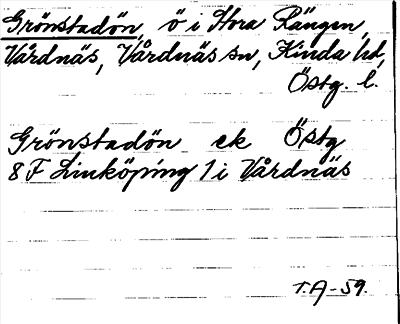 Grönstadön, ö i Stora Rängen,
Vårdnäs, Vårdnäs sn, Kinda hd,
Östg. l.
Grönstadön ek Östg
8 F Linköping 1 i Vårdnäs
T.A-59.